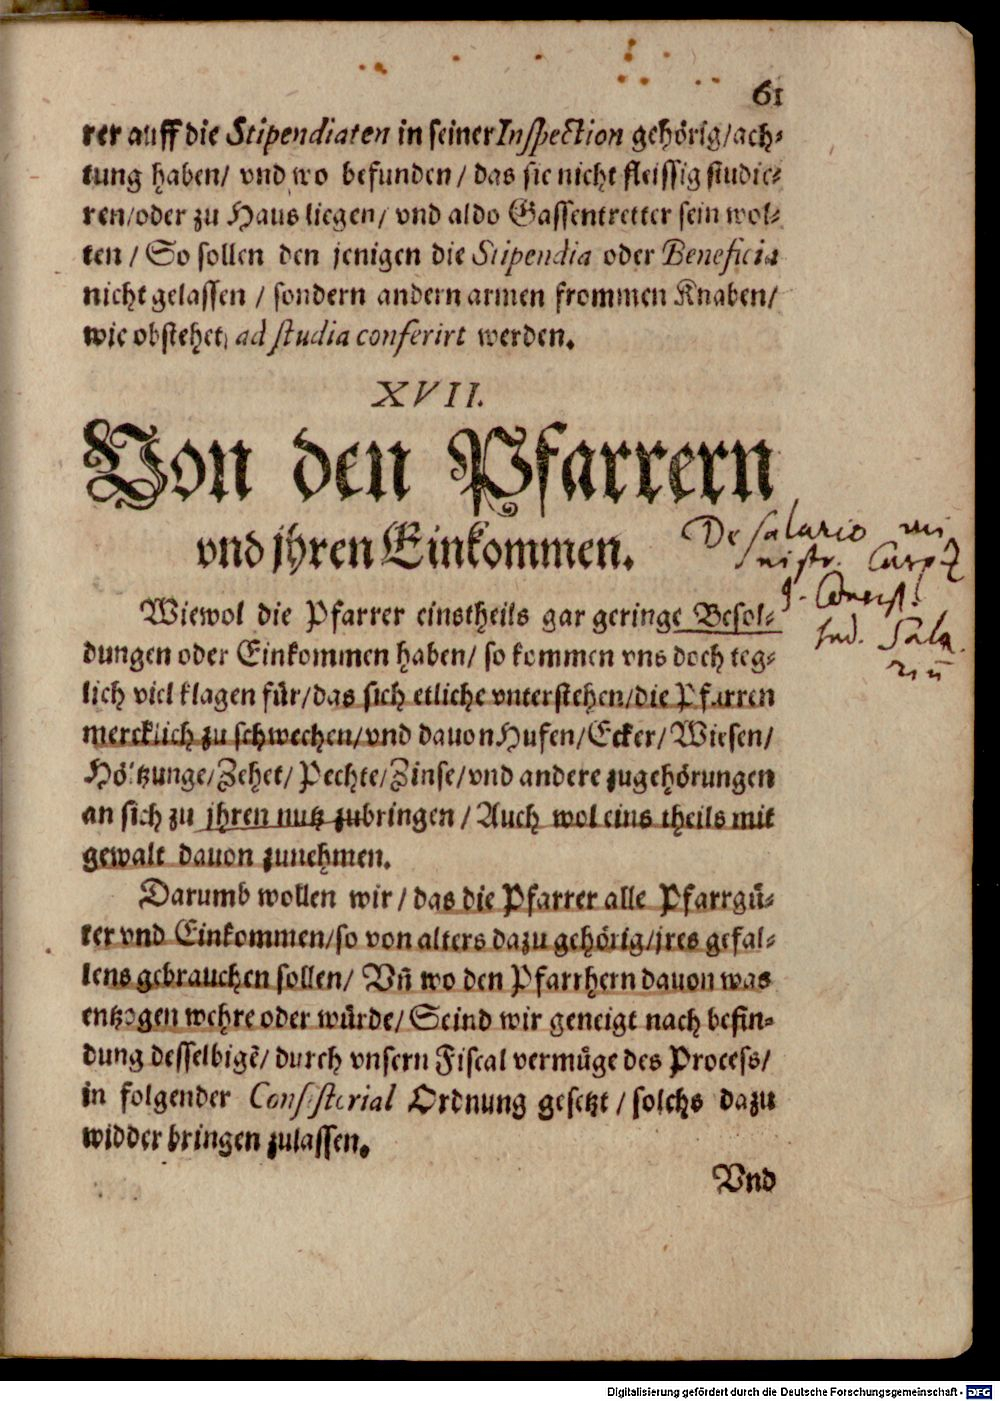 61
rer auff die Stipendiaten in seiner Inspection gehörig/ach-
tung haben/ vnd wo befunden/ das sie nicht fleissig studie-
ren/oder zu Haus liegen/ vnd aldo Gassentretter sein wol-
ten/ So sollen den jenigen die Stipendia oder Beneficia
nicht gelassen/ sondern andern armen frommen Knaben/
wie obstehet, ad studia conferirt werden.
XVII.
Von den Pfarrern
vnd jhren Einkommen.
De salario mi
nistr. Carpz
Wiewol die Pfarrer einstheils gar geringe Besol-
dungen oder Einkommen haben/ so kommen vns doch teg-
lich viel klagen für/das sich etliche vnterstehen/die Pfarren
mercklich zu schwechen/vnd dauon Hufen/Ecker/Wiesen/
Höltzunge/Zehet/Pechte/Zinse/vnd andere zugehörungen
an sich zu jhren nutz zubringen/ Auch wol eins theils mit
gewalt dauon zunehmen.
Darumb wollen wir/ das die Pfarrer alle Pfarrgü-
ter vnd Einkommen/so von alters dazu gehörig/jres gefal-
lens gebrauchen sollen/ Vñ wo den Pfarrhern dauon was
entzogen wehre oder würde/ Seind wir geneigt nach befin-
dung desselbigē/ durch vnsern Fiscal vermüge des Process/
in folgender Consistorial Ordnung gesetzt/ solchs dazu
widder bringen zulassen.
Vnd
Digitalisierung gefördert durch die Deutsche Forschungsgemeinschaft - DFG